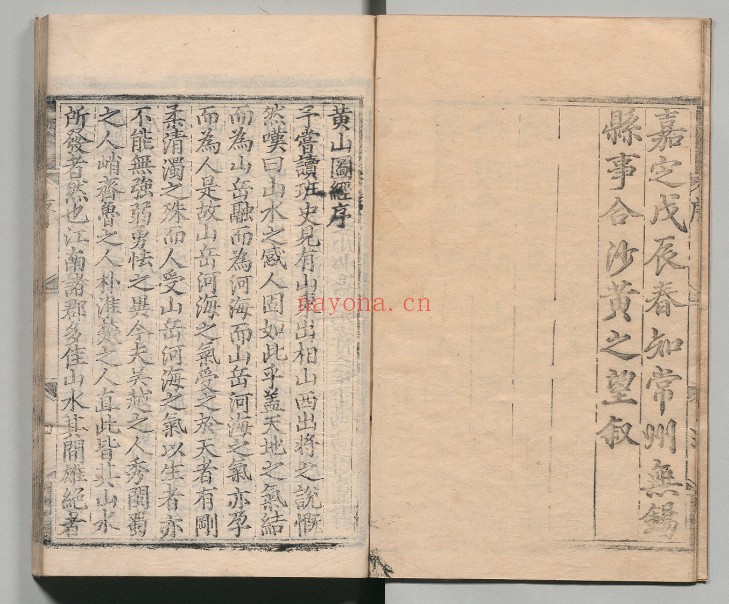 嘉定戊辰春知常州無錫
縣事合沙黃之望敘
黄山圖經序
予嘗讀班史見有山東出相山西出將之說慨
然嘆曰山水之感人固如此乎蓋天地之氣結
而為山岳融而為河海而山岳河海之氣亦孕
而為人是故山岳河海之氣受之於天者有剛
柔清濁之殊而人受山岳河海之氣以生者亦
不能無強弱勇怯之異今夫吳越之人秀閩蜀
之人峭齊魯之人朴淮楚之人直此皆其山水
所發者然也江南諸郡多佳山水其間雄絕者
nayona.cn